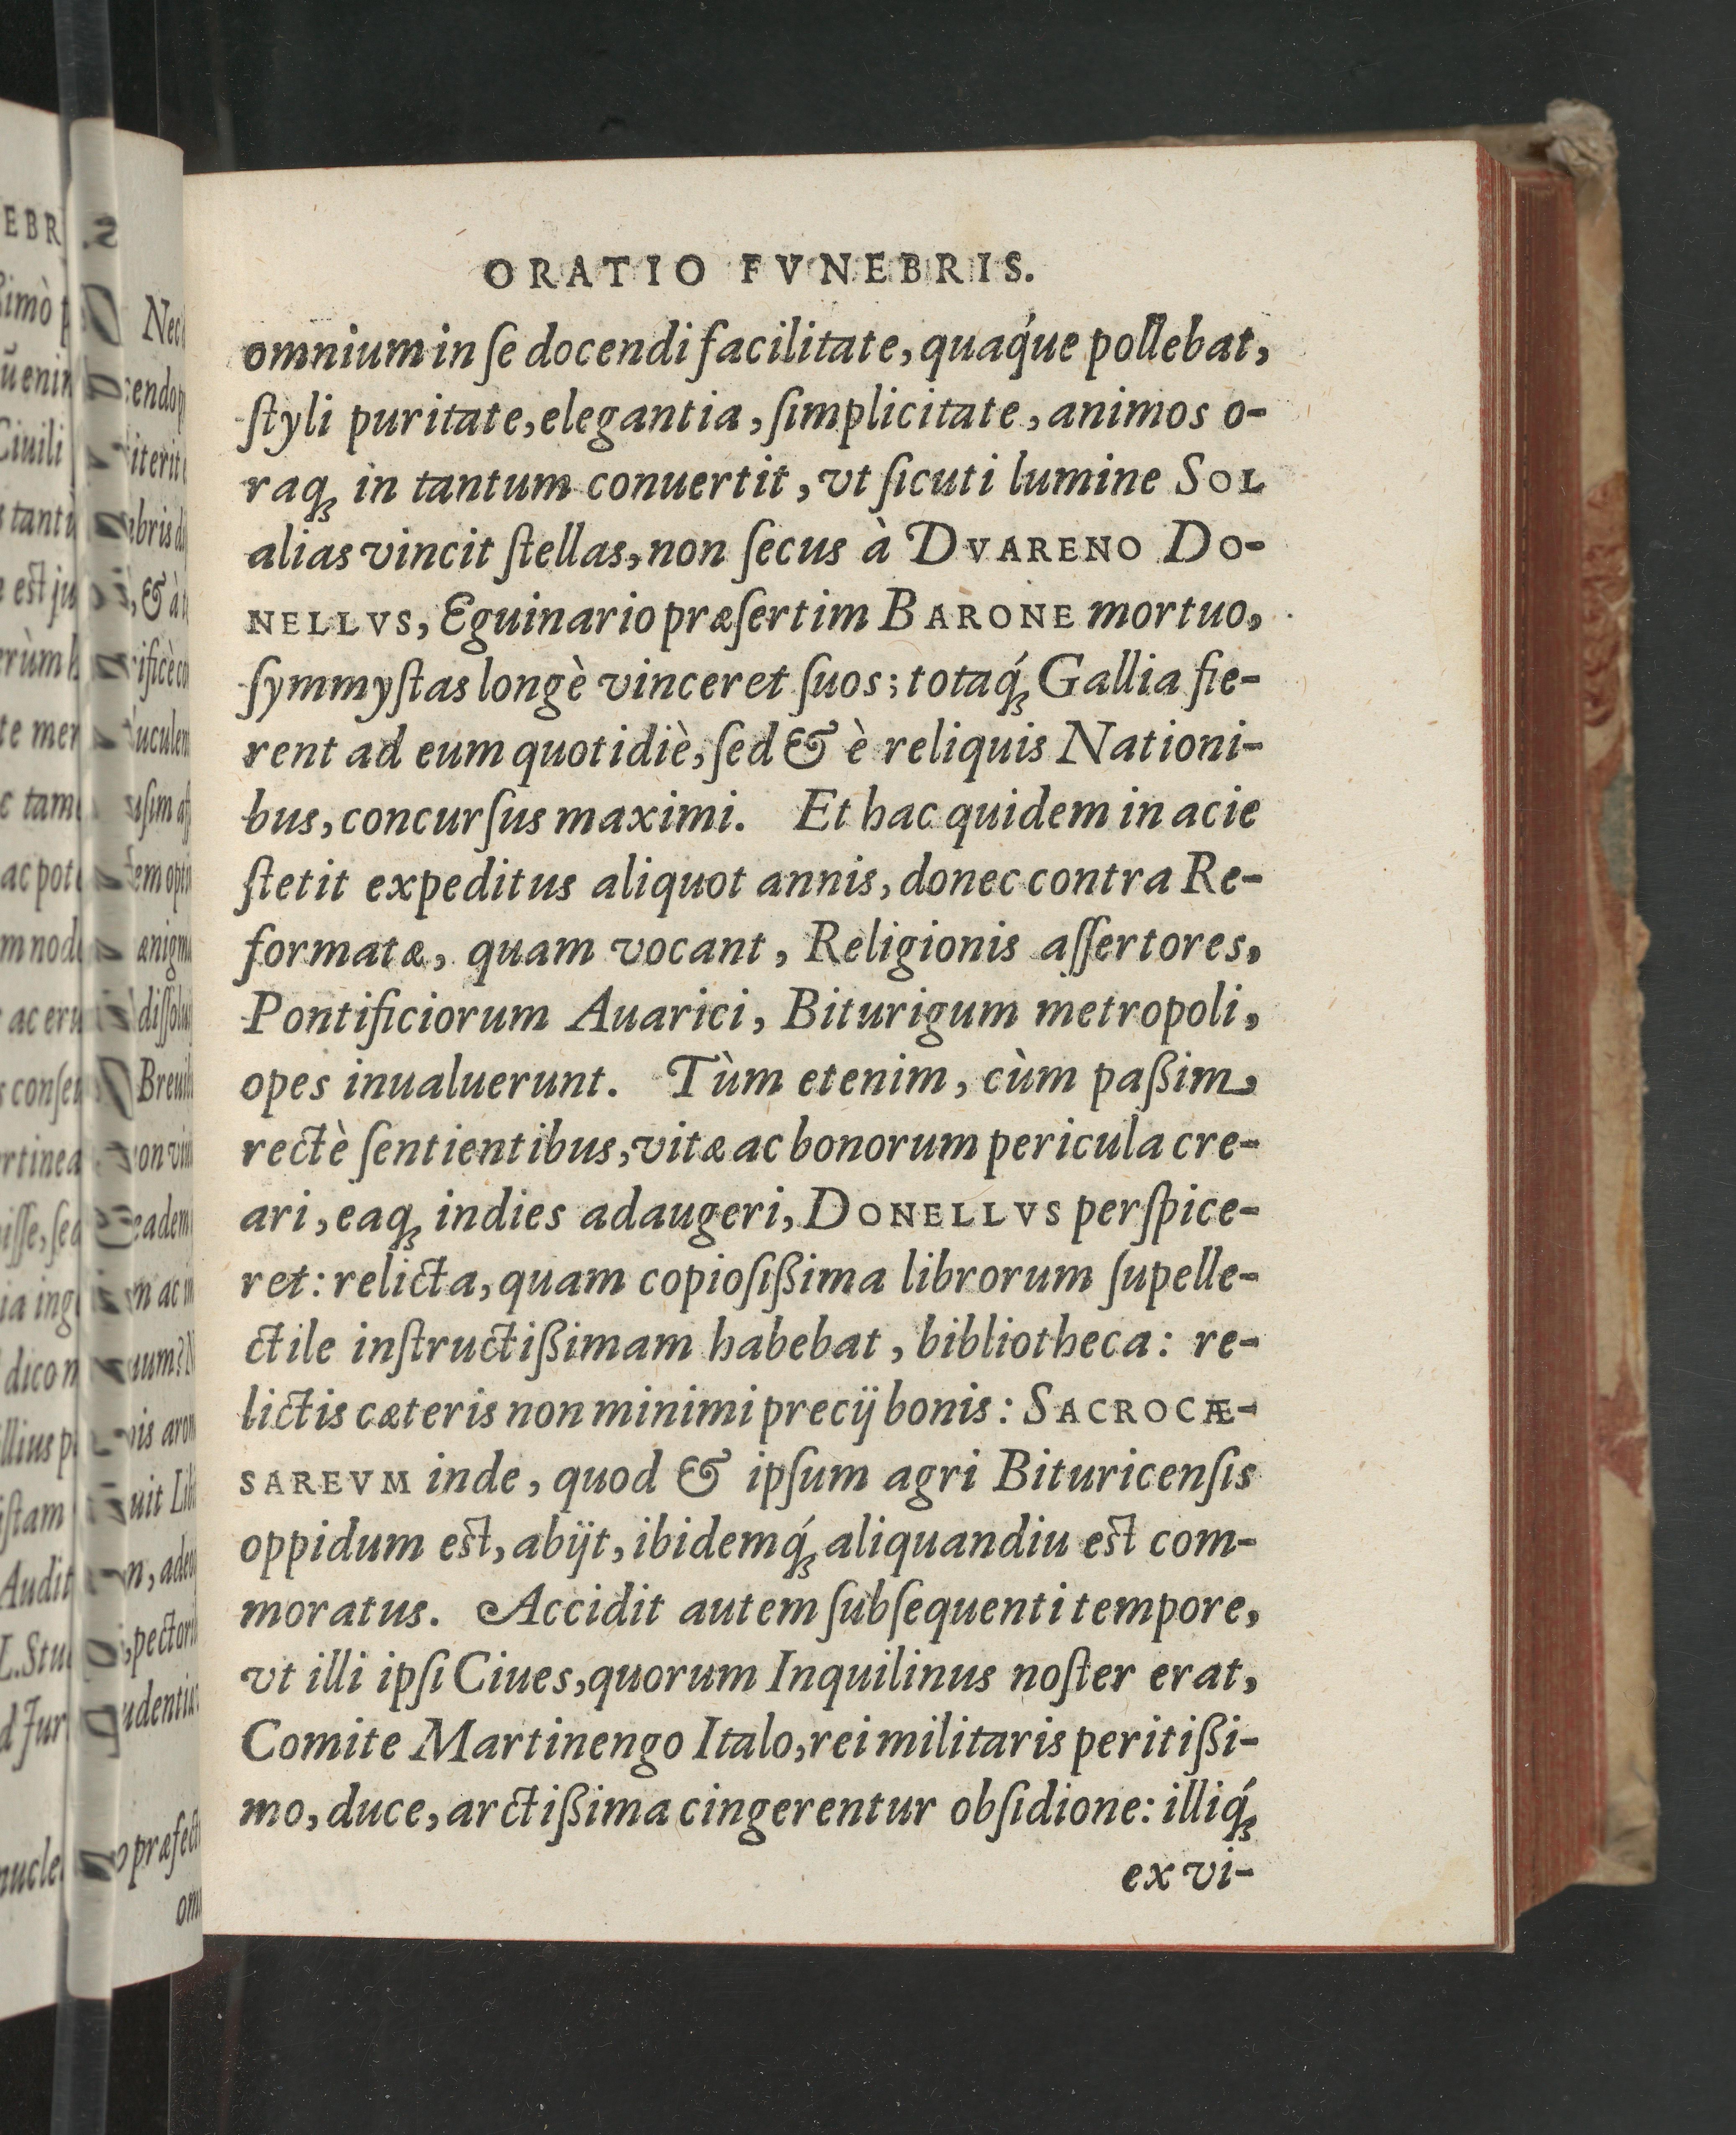 ORATIO FVNEBRIS.
omnium in ſe docendi facilitate, quaq́ue pollebat,
ſtyli puritate, elegantia, ſimplicitate, animos o-
raqꝫ in tantum conuertit, vt ſicuti lumine SOL
alias vincit ſtellas, non ſecus à DVARENO DO-
NELLVS, Eguinario præſertim BARONE mortuo,
ſymmyſtas longè vinceret ſuos; totaq́ꝫ Gallia fie-
rent ad eum quotidiè, ſed & è reliquis Nationi-
bus, concurſus maximi. Et hac quidem in acie
ſtetit expeditus aliquot annis, donec contra Re-
formatæ, quam vocant, Religionis aſſertores,
Pontificiorum Auarici, Biturigum metropoli,
opes inualuerunt. Tùm etenim, cùm paßim,
rectè ſentientibus, vitæ ac bonorum pericula cre-
ari, eaqꝫ indies adaugeri, DONELLVS perſpice-
ret: relicta, quam copioſißima librorum ſupelle-
ctile inſtructißimam habebat, bibliotheca: re-
lictis cæteris non minimi precij bonis: SACROCÆ-
SAREVM inde, quod & ipſum agri Bituricenſis
oppidum est, abijt, ibidemq́ꝫ aliquandiu est com-
moratus. Accidit autem ſubſequenti tempore,
vt illi ipſi Ciues, quorum Inquilinus noſter erat,
Comite Martinengo Italo, rei militaris peritißi-
mo, duce, arctißima cingerentur obſidione: illiq́ꝫ
ex vi-